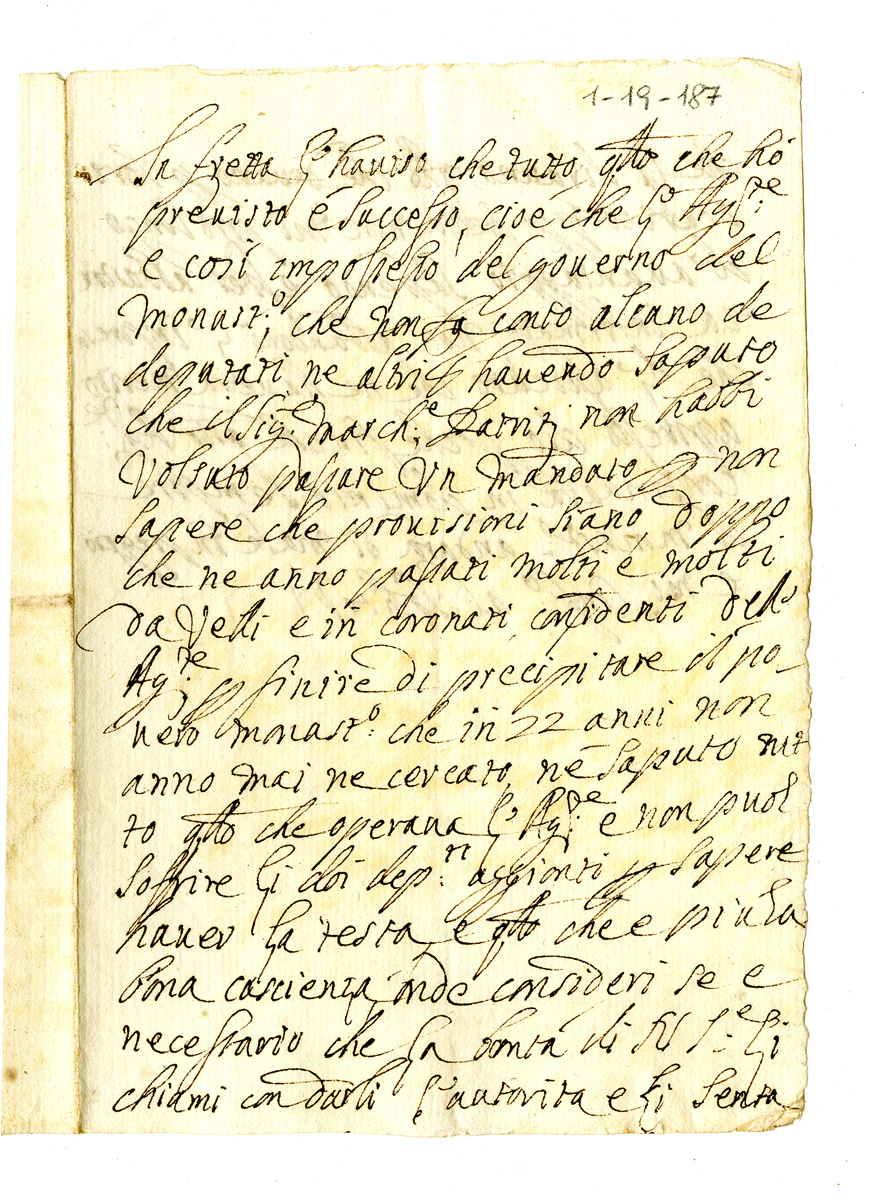 1-19-187
In fretta l'haviso che tutto qto che hò
previsto é successo, cioé che l'Agte
e cosí impossessto del governo del
Monastº, che non fa conto alcuno de
deputati ne altri, havendo saputo
che il Sige March:e Patritj non habbi
Volsuto passare Un Mandato p non
sapere che provisioni siano, doppo
che ne anno passati molti é molti
da Velli e in coronati, confidenti dell'
Ag:te p finire di precipitare il po-
vero monastº: che in 22 anni non
anno mai ne cercato, né saputo tut
to qto che operava l'Ag:te e non puol
soffrire li doi dep:ti aggionti p sapere
haver la testa, e qto che e piu la
bona cascienza, onde consideri se e
necessario che la bontà di SV S:e li
chiami con darli l'autorita e li senta